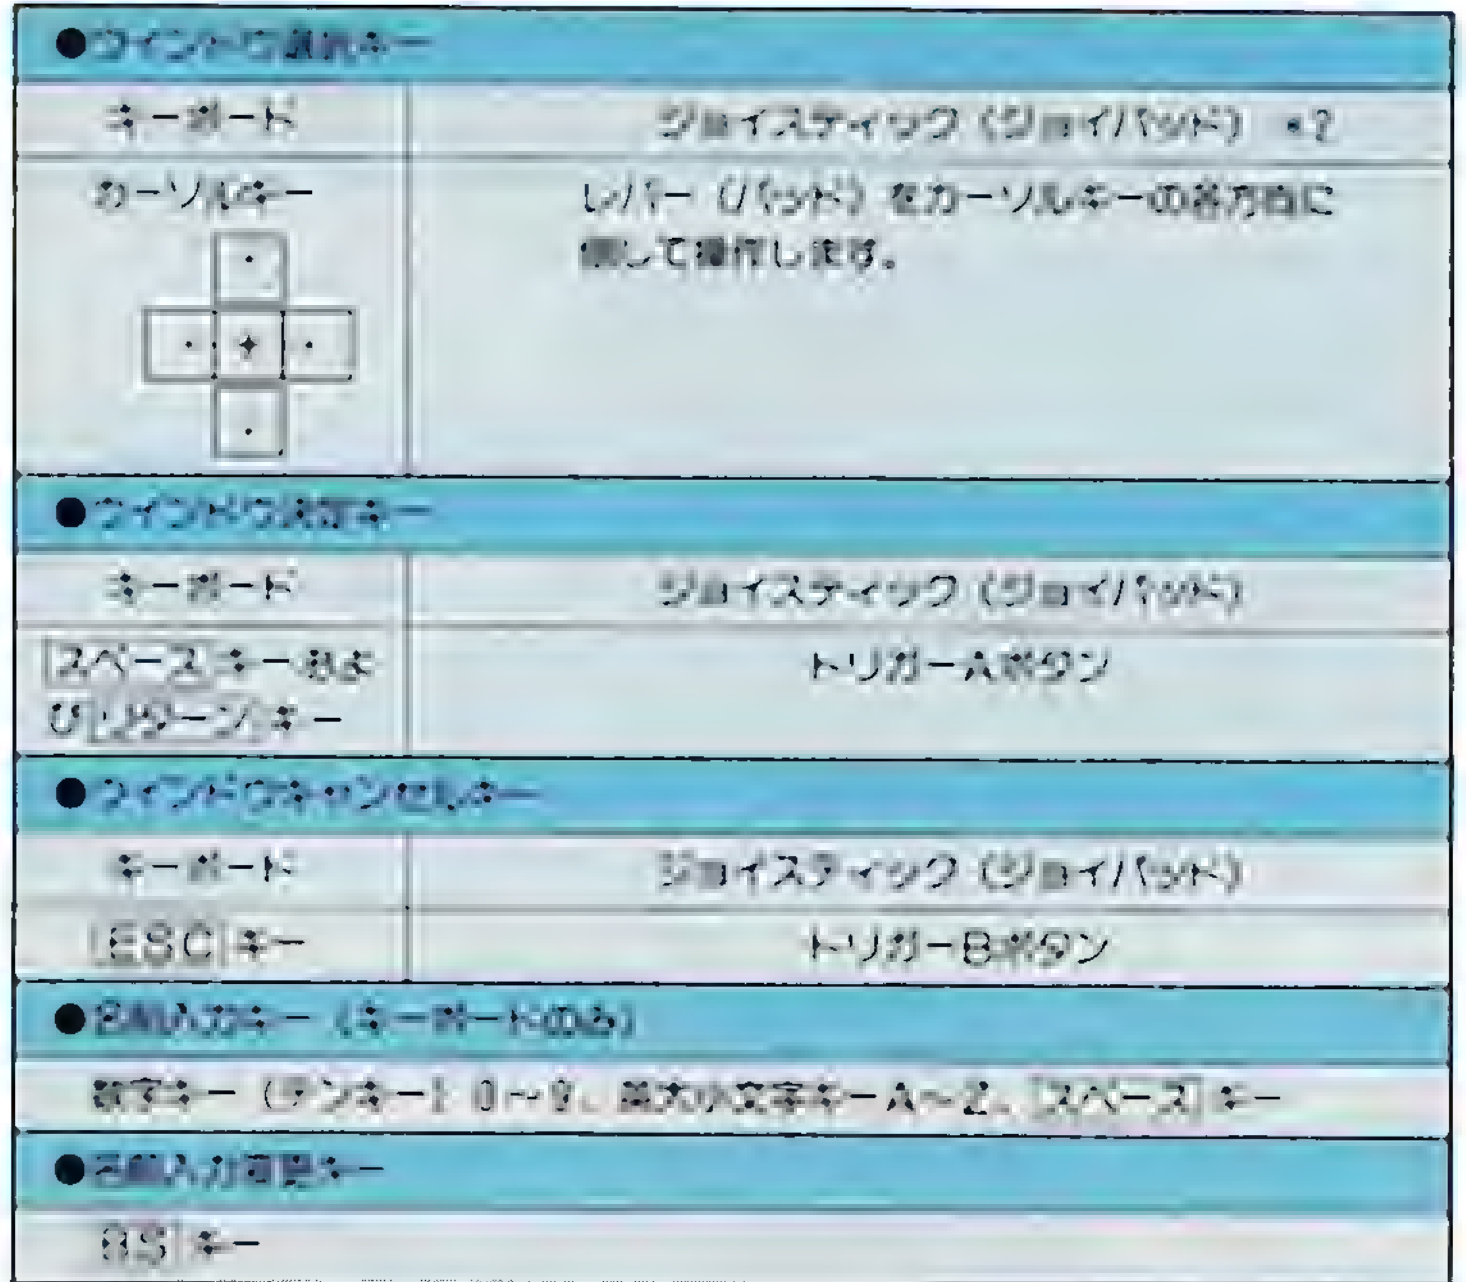 ●ウインドウ選択キー
キーボード
ジョイスティック（ジョイパッド） *?
カーソルキー
レバー（パッド）をカーソルキーの各方向に
倒して操作します。
●ウインドウ決定キー
キーボード
ジョイスティック（ジョイパッド）
[スペース]キーおよ
び[リターン]キー
トリガーAボタン
●ウインドウキャンセルキー
キーボード
ジョイスティック（ジョイパッド）
[ESC]キー
トリガーBボタン
●名前入力キー（キーボードのみ）
数字キー（テンキー）0～9、英大小文字キーA～Z、[スペース]キー
●名前入力変更キー
[BS]キー